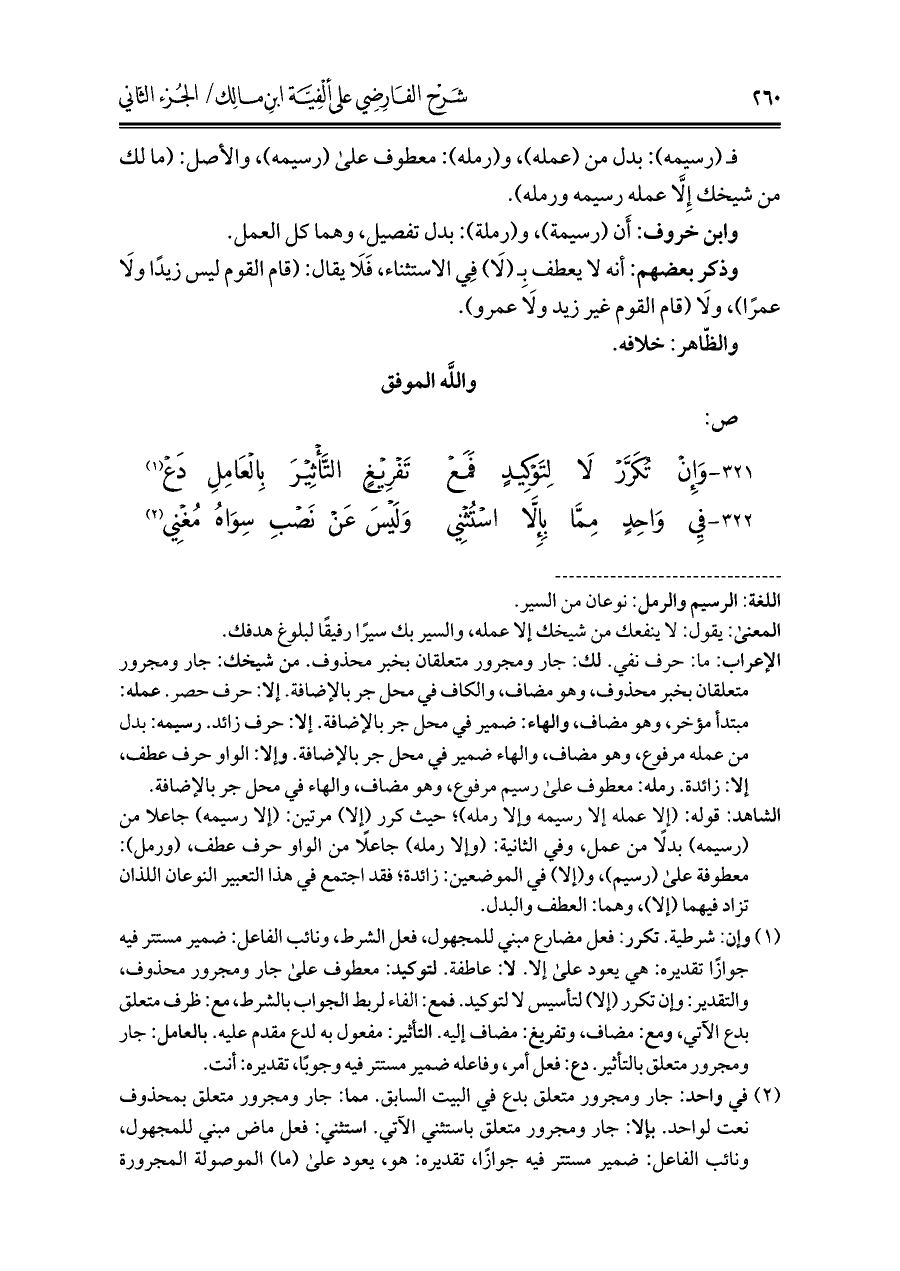 ٢٦٠ شرح الفارضي على ألفية ابن مالك/ الجزء الثاني
فـ (رسيمه): بدل من (عمله)، و(رمله): معطوف علىٰ (رسيمه)، والأصل: (ما لك
من شيخك إِلَّا عمله رسيمه ورمله).
وابن خروف: أَن (رسيمة)، و(رملة): بدل تفصيل، وهما كل العمل.
وذكر بعضهم: أنه لا يعطف بِـ (لَا) فِي الاستثناء، فَلَا يقال: (قام القوم ليس زيدًا ولَا
عمرًا)، ولَا (قام القوم غير زيد ولَا عمرو).
والظّاهر: خلافه.
واللَّه الموفق
ص:
٣٢١-وَإِنْ تُكَرَّرْ لَا لِتَوْكِيدٍ فَمَعْ تَفْرِيْغٍ التَّأْثِيْرَ بِالْعَامِلِ دَعْ(١)
٣٢٢-فِي وَاحِدٍ مِمَّا بِإِلَّا اسْتُثْنِي وَلَيْسَ عَنْ نَصْبِ سِوَاهُ مُغْنِي(٢)
اللغة: الرسيم والرمل: نوعان من السير.
المعنىٰ: يقول: لا ينفعك من شيخك إلا عمله، والسير بك سيرًا رفيقًا لبلوغ هدفك.
الإعراب: ما: حرف نفي. لك: جار ومجرور متعلقان بخبر محذوف. من شيخك: جار ومجرور
متعلقان بخبر محذوف، وهو مضاف، والكاف في محل جر بالإضافة. إلا: حرف حصر. عمله:
مبتدأ مؤخر، وهو مضاف، والهاء: ضمير في محل جر بالإضافة. إلا: حرف زائد. رسيمه: بدل
من عمله مرفوع، وهو مضاف، والهاء ضمير في محل جر بالإضافة. وإلا: الواو حرف عطف،
إلا: زائدة. رمله: معطوف علىٰ رسيم مرفوع، وهو مضاف، والهاء في محل جر بالإضافة.
الشاهد: قوله: (إلا عمله إلا رسيمه وإلا رمله)؛ حيث كرر (إلا) مرتين: (إلا رسيمه) جاعلا من
(رسيمه) بدلًا من عمل، وفي الثانية: (وإلا رمله) جاعلًا من الواو حرف عطف، (ورمل):
معطوفة علىٰ (رسيم)، و(إلا) في الموضعين: زائدة؛ فقد اجتمع في هذا التعبير النوعان اللذان
تزاد فيهما (إلا)، وهما: العطف والبدل.
(١) وإن: شرطية. تكرر: فعل مضارع مبني للمجهول، فعل الشرط، ونائب الفاعل: ضمير مستتر فيه
جوازًا تقديره: هي يعود علىٰ إلا. لا: عاطفة. لتوكيد: معطوف علىٰ جار ومجرور محذوف،
والتقدير: وإن تكرر (إلا) لتأسيس لا لتوكيد. فمع: الفاء لربط الجواب بالشرط، مع: ظرف متعلق
بدع الآتي، ومع: مضاف، وتفريغ: مضاف إليه. التأثير: مفعول به لدع مقدم عليه. بالعامل: جار
ومجرور متعلق بالتأثير. دع: فعل أمر، وفاعله ضمير مستتر فيه وجوبًا، تقديره: أنت.
(٢) في واحد: جار ومجرور متعلق بدع في البيت السابق. مما: جار ومجرور متعلق بمحذوف
نعت لواحد. بإلا: جار ومجرور متعلق باستثني الآتي. استثني: فعل ماض مبني للمجهول،
ونائب الفاعل: ضمير مستتر فيه جوازًا، تقديره: هو، يعود علىٰ (ما) الموصولة المجرورة